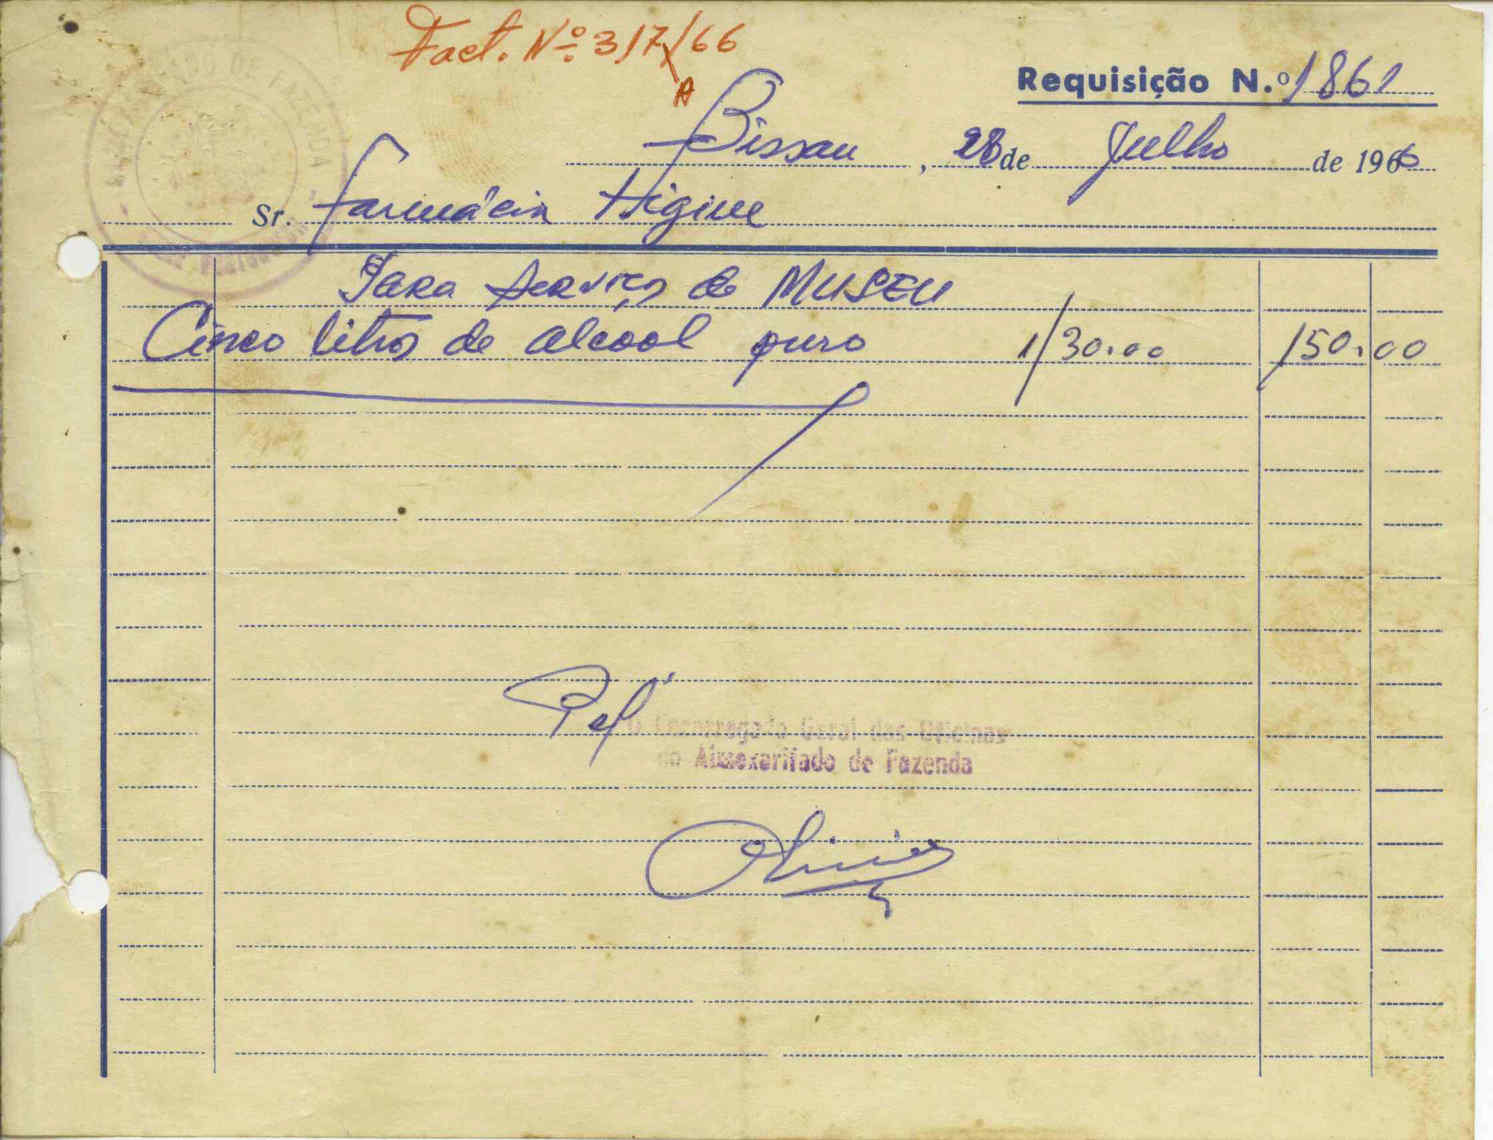 Fact. Nº 317/66
A
Requisição N.º 1861
Bissau, 28 de Julho de 1966
Sr. Farmácia Higiene
Para serviço do MUSEU
Cinco litros de alcool puro 1/30.00 150.00
Pel'
O Encarregado Geral das Oficinas
do Almoxarifado de Fazenda